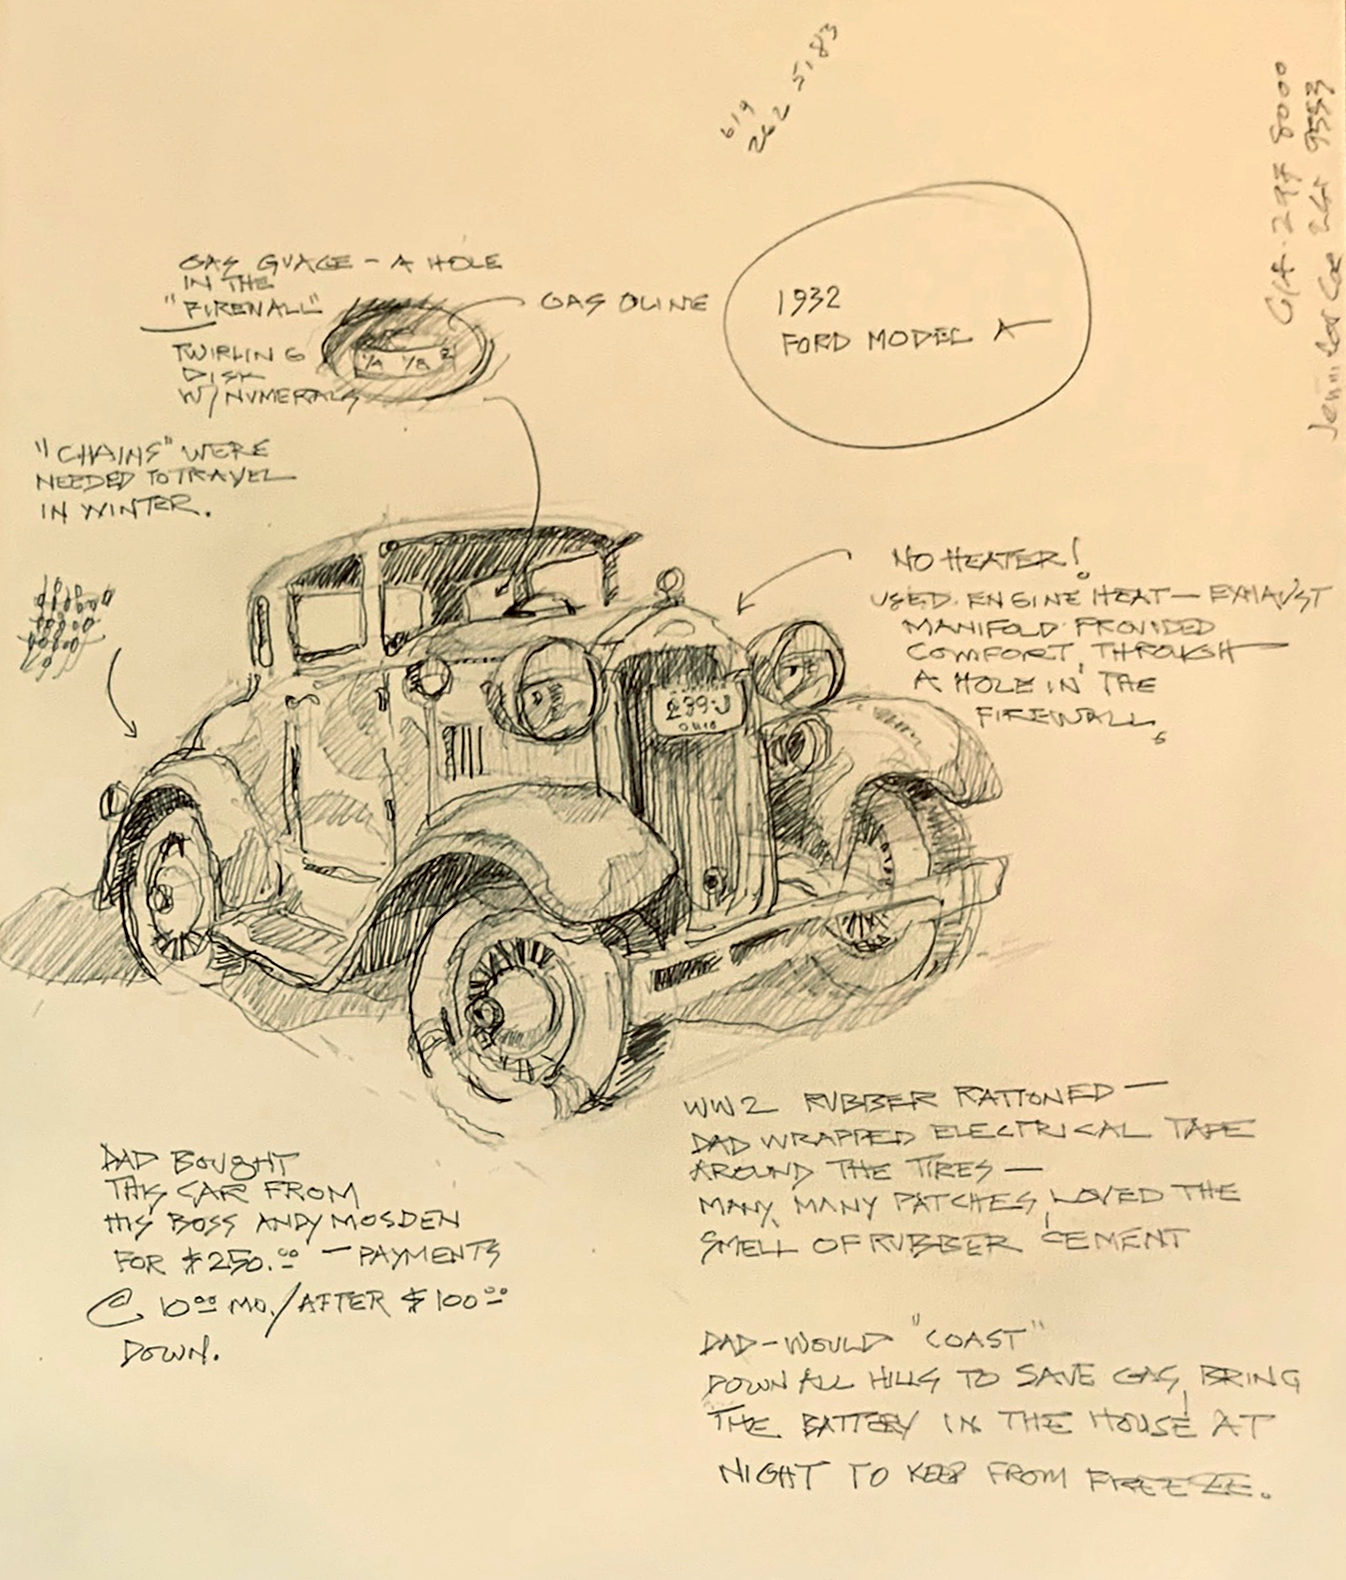 619
262 5183
GAS GUAGE - A HOLE
IN THE
"FIREWALL"
GASOLINE
TWIRLING
DISK
W/ NUMERALS
1/4 1/2
1932
FORD MODEL A
"CHAINS" WERE
NEEDED TO TRAVEL
IN WINTER.
NO HEATER!
USED ENGINE HEAT - EXHAUST
MANIFOLD PROVIDED
COMFORT, THROUGH
A HOLE IN THE
FIREWALL.
239-J
OHIO
DAD BOUGHT
THIS CAR FROM
HIS BOSS ANDY MOSDEN
FOR $250.00 - PAYMENTS
@ 10 00 MO./AFTER $100 00
DOWN.
WW2 RUBBER RATIONED -
DAD WRAPPED ELECTRICAL TAPE
AROUND THE TIRES -
MANY, MANY PATCHES, LOVED THE
SMELL OF RUBBER CEMENT
DAD - WOULD "COAST"
DOWN ALL HILLS TO SAVE GAS, BRING
THE BATTERY IN THE HOUSE AT
NIGHT TO KEEP FROM FREEZE.
8000
9553